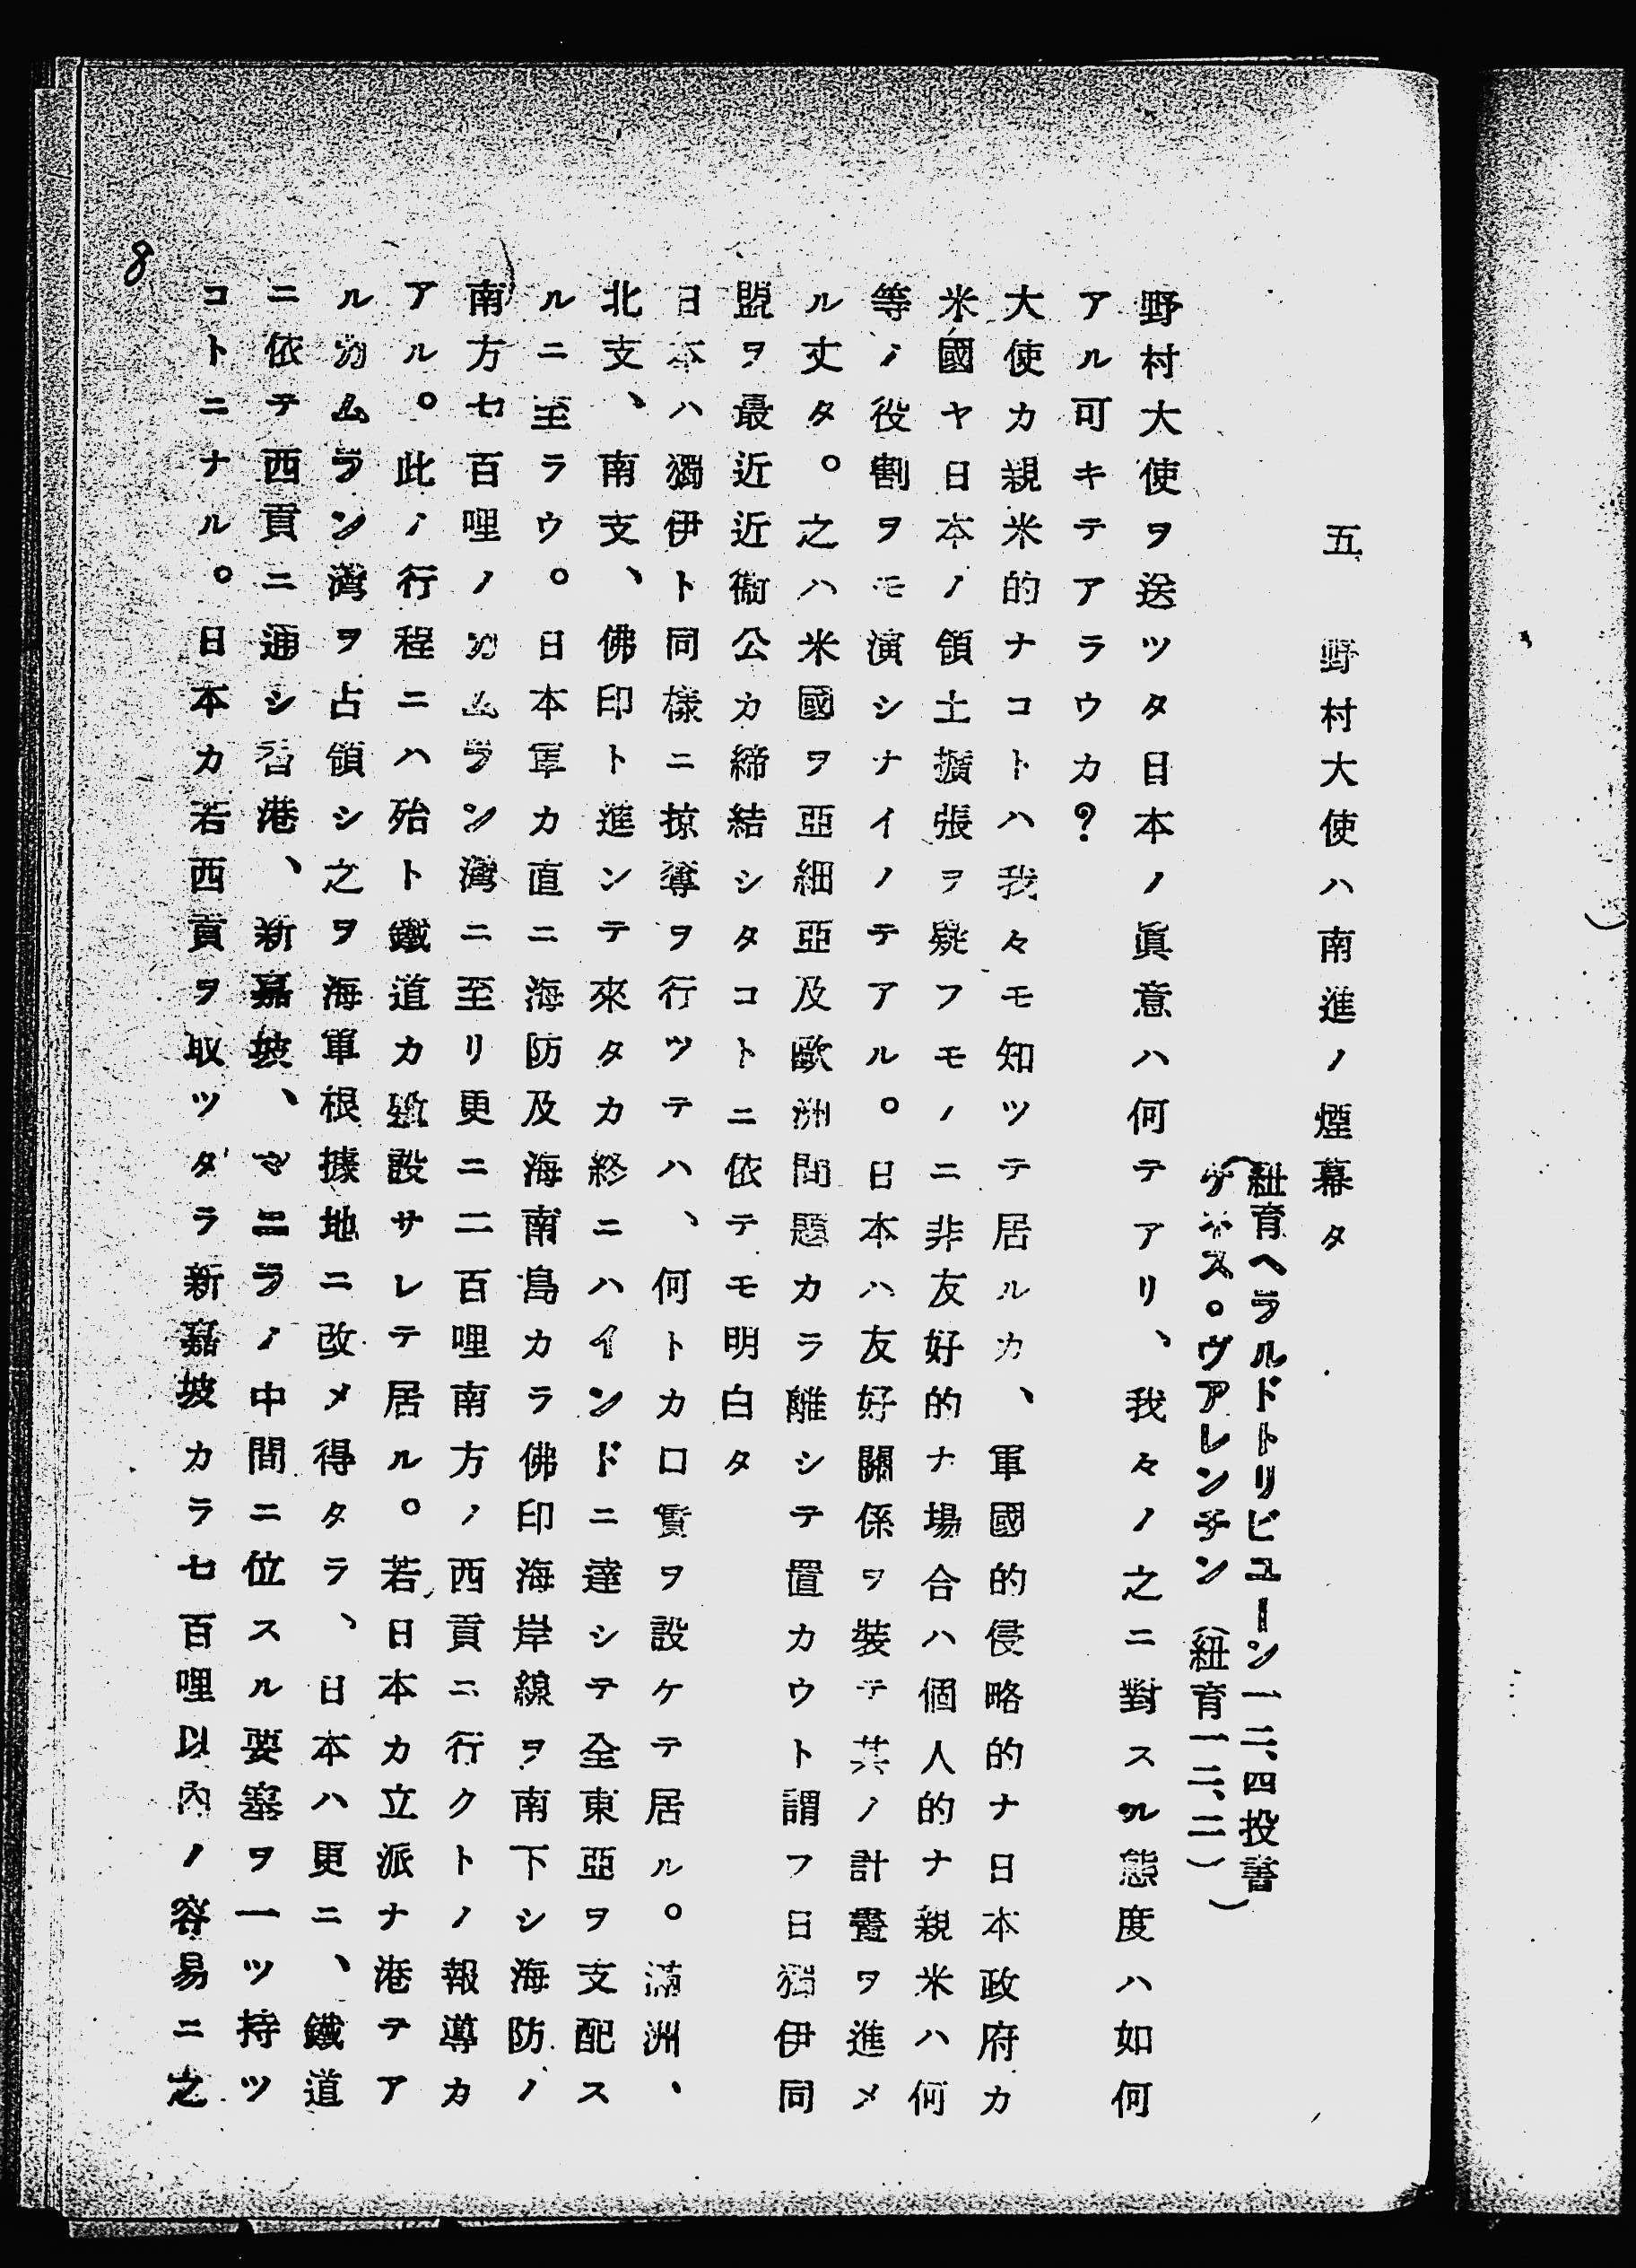 五　野村大使ハ南進ノ煙幕タ
（紐育ヘラルドトリビユーン一二、四投書
ゲホス。ヴアレンチン（紐育一二、二））
野村大使ヲ送ツタ日本ノ眞意ハ何テアリ、我々ノ之ニ對スル態度ハ如何
アル可キテアラウカ？
大使カ親米的ナコトハ我々モ知ツテ居ルカ、軍國的侵略的ナ日本政府カ
米國ヤ日本ノ領土擴張ヲ疑フモノニ非友好的ナ場合ハ個人的ナ親米ハ何
等ノ役割ヲモ演シナイノテアル。日本ハ友好關係ヲ裝テ其ノ計畫ヲ進メ
ル丈タ。之ハ米國ヲ亞細亞及歐洲問題カラ離シテ置カウト謂フ日獨伊同
盟ヲ最近近衞公カ締結シタコトニ依テモ明白タ
日本ハ獨伊ト同樣ニ掠奪ヲ行ツテハ、何トカ口實ヲ設ケテ居ル。滿洲、
北支、南支、佛印ト進ンテ來タカ終ニハインドニ達シテ全東亞ヲ支配ス
ルニ至ラウ。日本軍カ直ニ海防及海南島カラ佛印海岸線ヲ南下シ海防ノ
南方七百哩ノカムラン灣ニ至リ更ニ二百哩南方ノ西貢ニ行クトノ報導カ
アル。此ノ行程ニハ殆ト鐵道カ敷設サレテ居ル。若日本カ立派ナ港テア
ルカムラン灣ヲ占領シ之ヲ海軍根據地ニ改メ得タラ、日本ハ更ニ、鐵道
ニ依テ西貢ニ通シ香港、新嘉坡、マニラノ中間ニ位スル要塞ヲ一ツ持ツ
コトニナル。日本カ若西貢ヲ取ツダラ新嘉坡カラ七百哩以內ノ容易ニ之
8